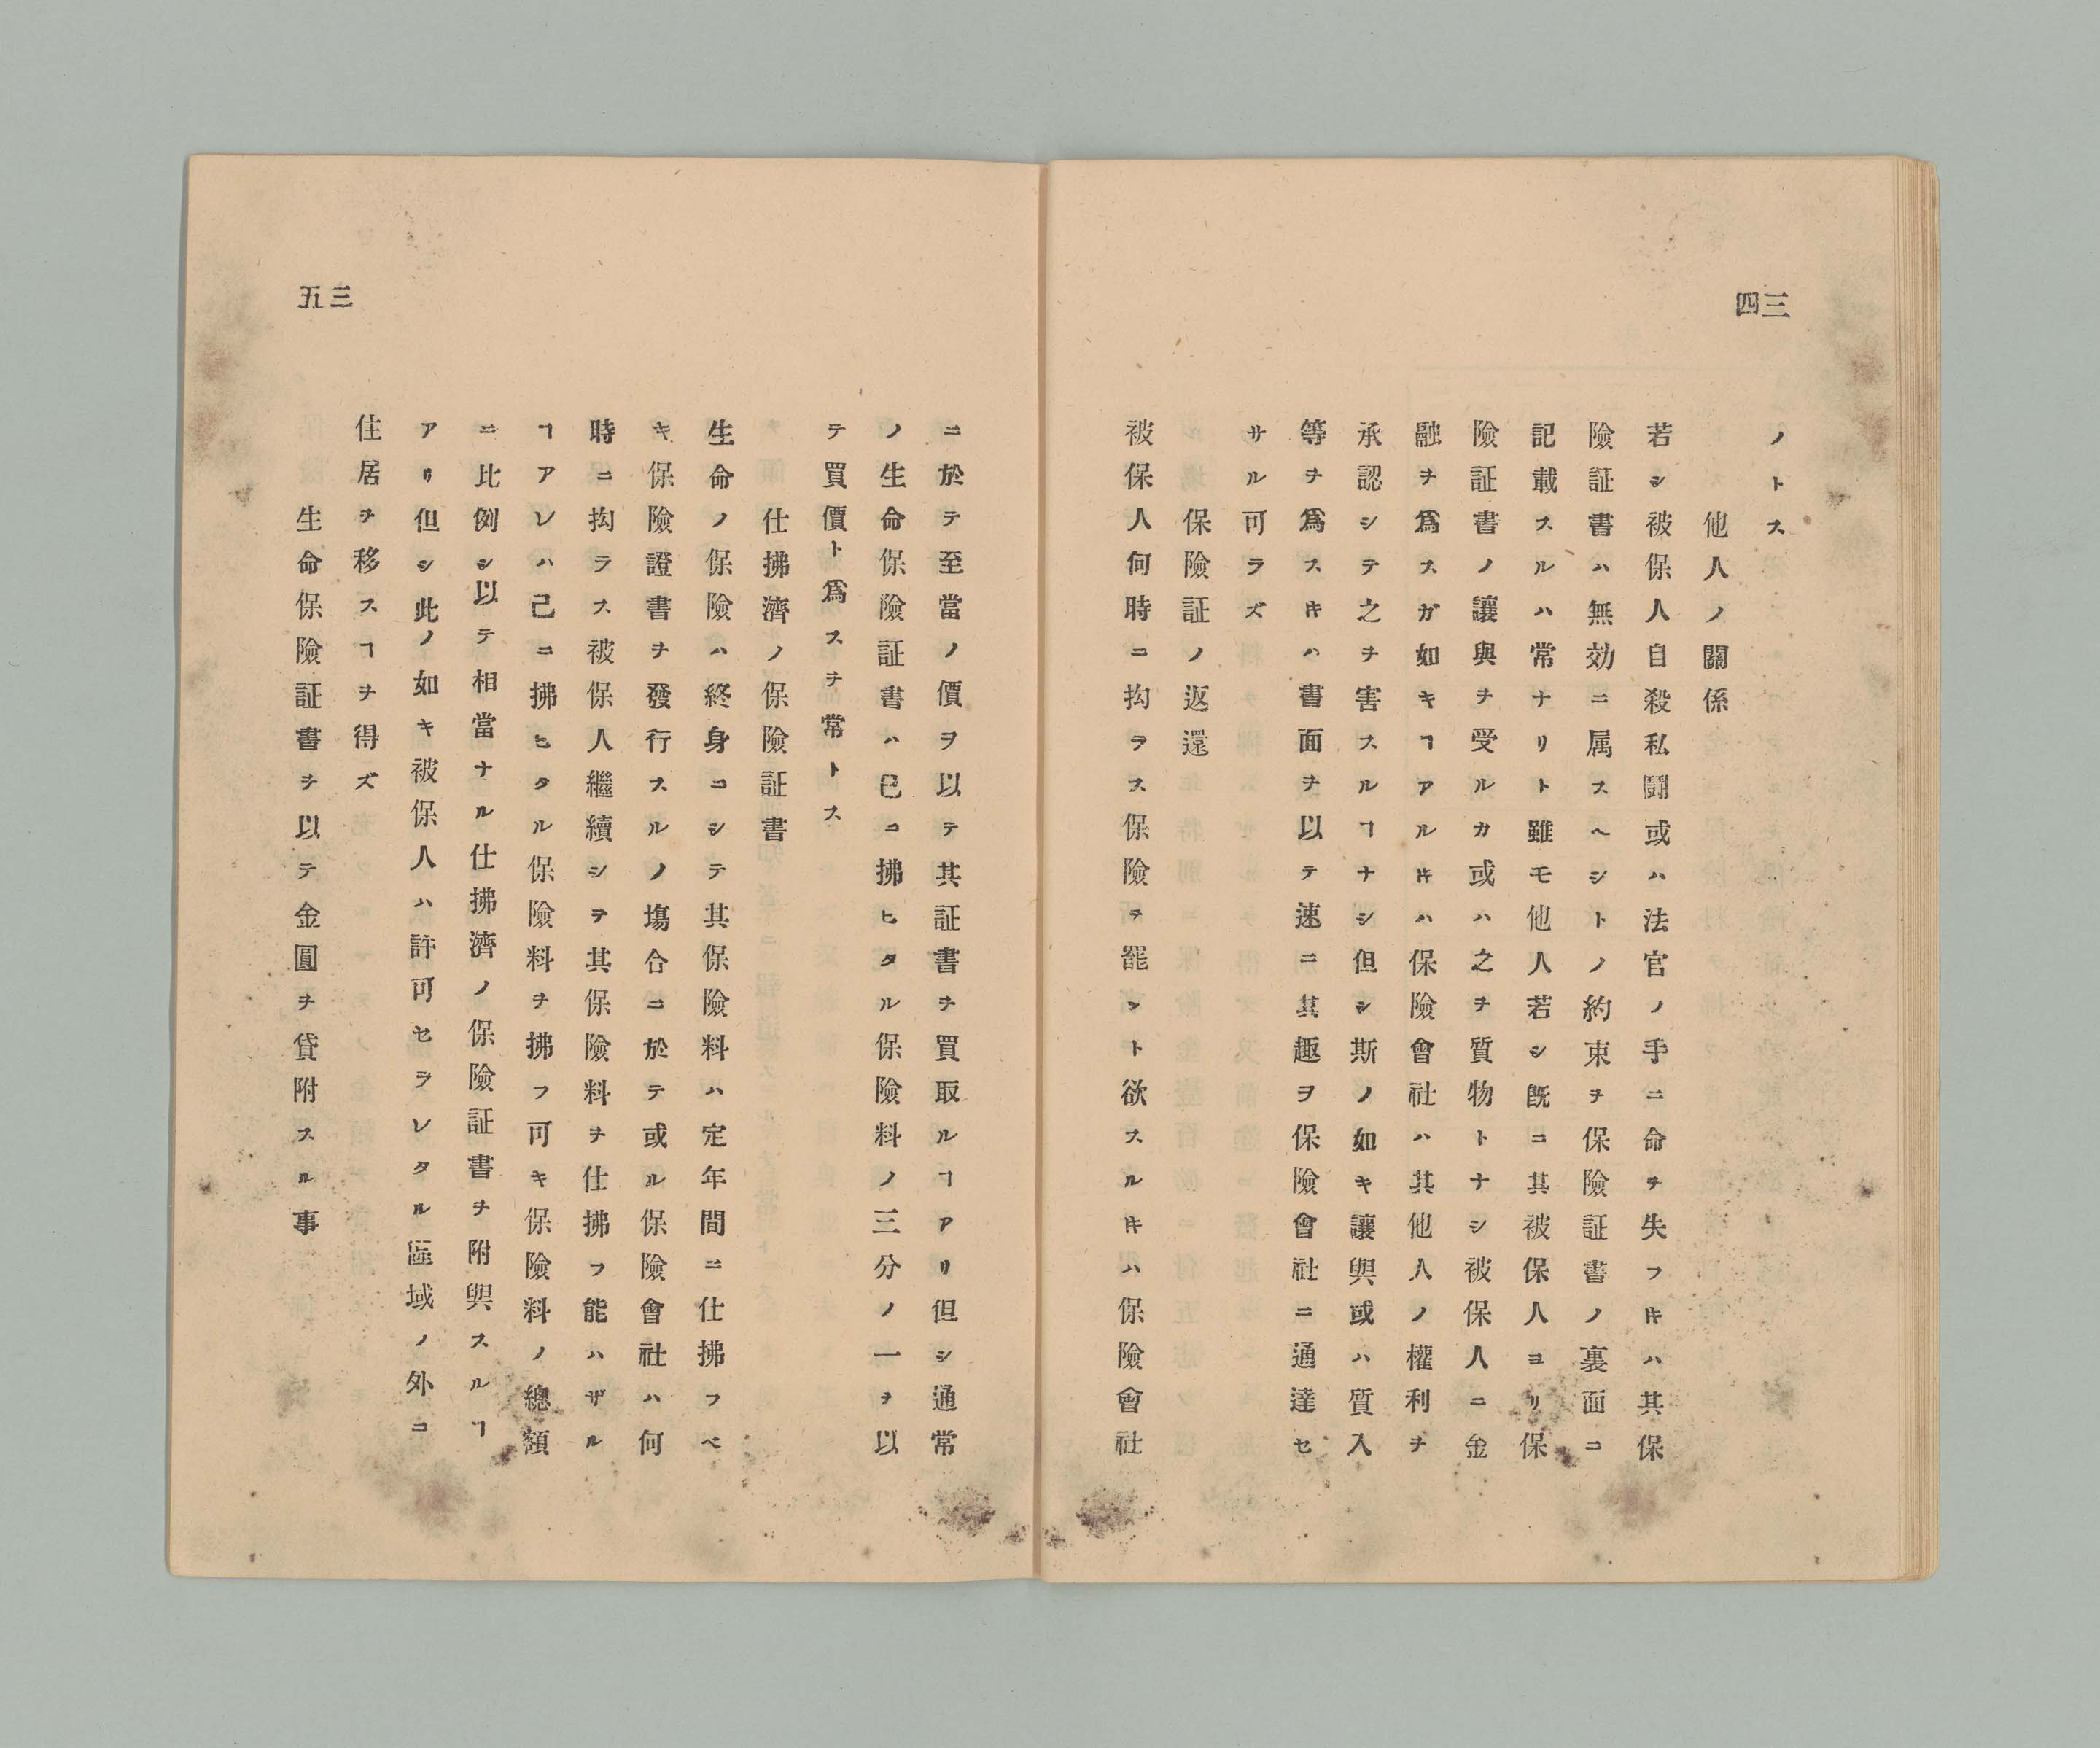 三四
ノトス
他人ノ關係
若シ被保人自殺私鬪或ハ法官ノ手ニ命ヲ失フ𪜈ハ其保
險証書ハ無効ニ属スヘシトノ約束ヲ保險証書ノ裏面ニ
記載スルハ常ナリト雖モ他人若シ既ニ其被保人ヨリ保
險証書ノ讓與ヲ受ルカ或ハ之ヲ質物トナシ被保人ニ金
融ヲ爲スガ如キヿアル𪜈ハ保險會社ハ其他人ノ權利ヲ
承認シテ之ヲ害スルヿナシ但シ斯ノ如キ讓與或ハ質入
等ヲ爲ス𪜈ハ書面ヲ以テ速ニ其趣ヲ保險會社ニ通達セ
サル可ラズ
保險証ノ返還
被保人何時ニ拘ラス保險ヲ罷ント欲スル𪜈ハ保險會社
三五
ニ於テ至當ノ價ヲ以テ其証書ヲ買取ルヿアリ但シ通常
ノ生命保險証書ハ已ニ拂ヒタル保險料ノ三分ノ一ヲ以
テ買價ト爲スヲ常トス
仕拂濟ノ保險証書
生命ノ保險ハ終身ニシテ其保險料ハ定年間ニ仕拂フベ
キ保險證書ヲ發行スルノ塲合ニ於テ或ル保險會社ハ何
時ニ拘ラス被保人繼續シテ其保險料ヲ仕拂フ能ハザル
ヿアレハ己ニ拂ヒタル保險料ヲ拂フ可キ保險料ノ總額
ニ比例シ以テ相當ナル仕拂濟ノ保險証書ヲ附與スルヿ
アリ但シ此ノ如キ被保人ハ許可セラレタル區域ノ外ニ
住居ヲ移スヿヲ得ズ
生命保險証書ヲ以テ金圓ヲ貸附スル事